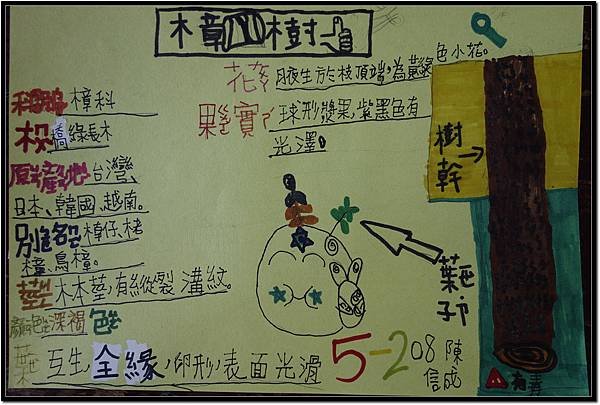 樟樹
科名 樟科
木橋綠喬木
原產地 台灣、
日本、韓國、越南。
別名 樟仔、栳
樟、鳥樟。
莖 木本莖,有縱裂溝紋。
顏色 深褐色
葉 互生,全緣,卵形,表面光滑
花 腋生於枝頂端,為黃綠
色小花。
果實 球形漿果,紫黑色有
光澤。
樹幹→
葉子
5-2 08 陳
信成
有毒